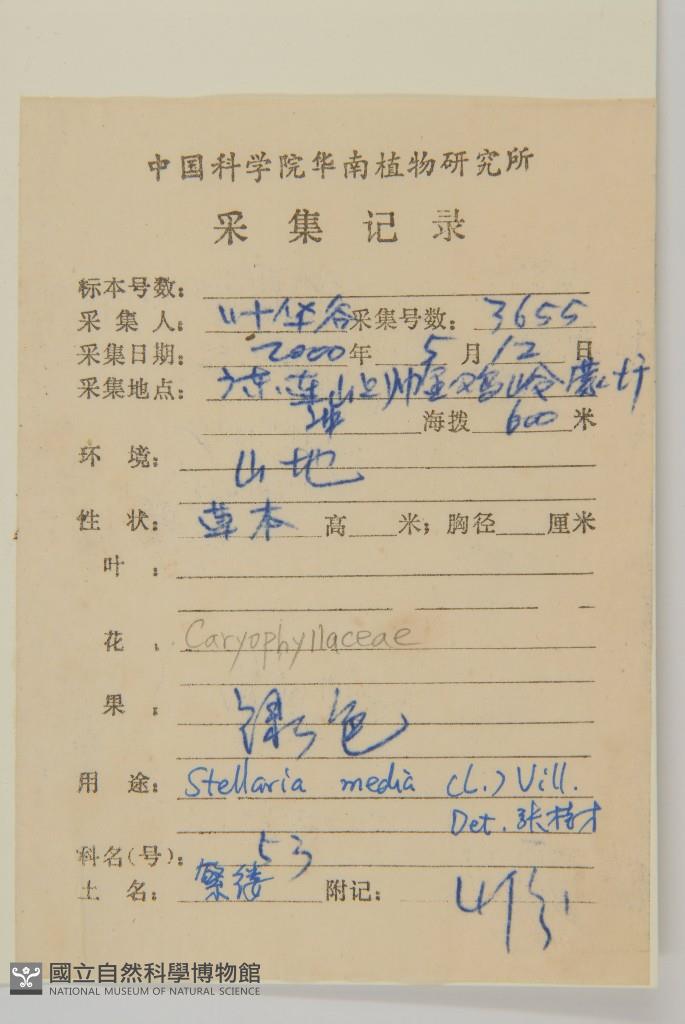 中国科学院华南植物研究所
采集记录
标本号数:
采集人: 叶华谷 采集号数: 3655
采集日期: 2000年 5月 12日
采集地点: 连山上帅
海拨 600 米
环境: 山地
性状: 草本 高 米; 胸径 厘米
叶:
花: Caryophyllaceae
果: 绿色
用途: Stellaria media (L.) Vill.
Det. 张
科名(号): 53
土名: 繁缕 附记: 4份
國立自然科學博物館
NATIONAL MUSEUM OF NATURAL SCIENCE